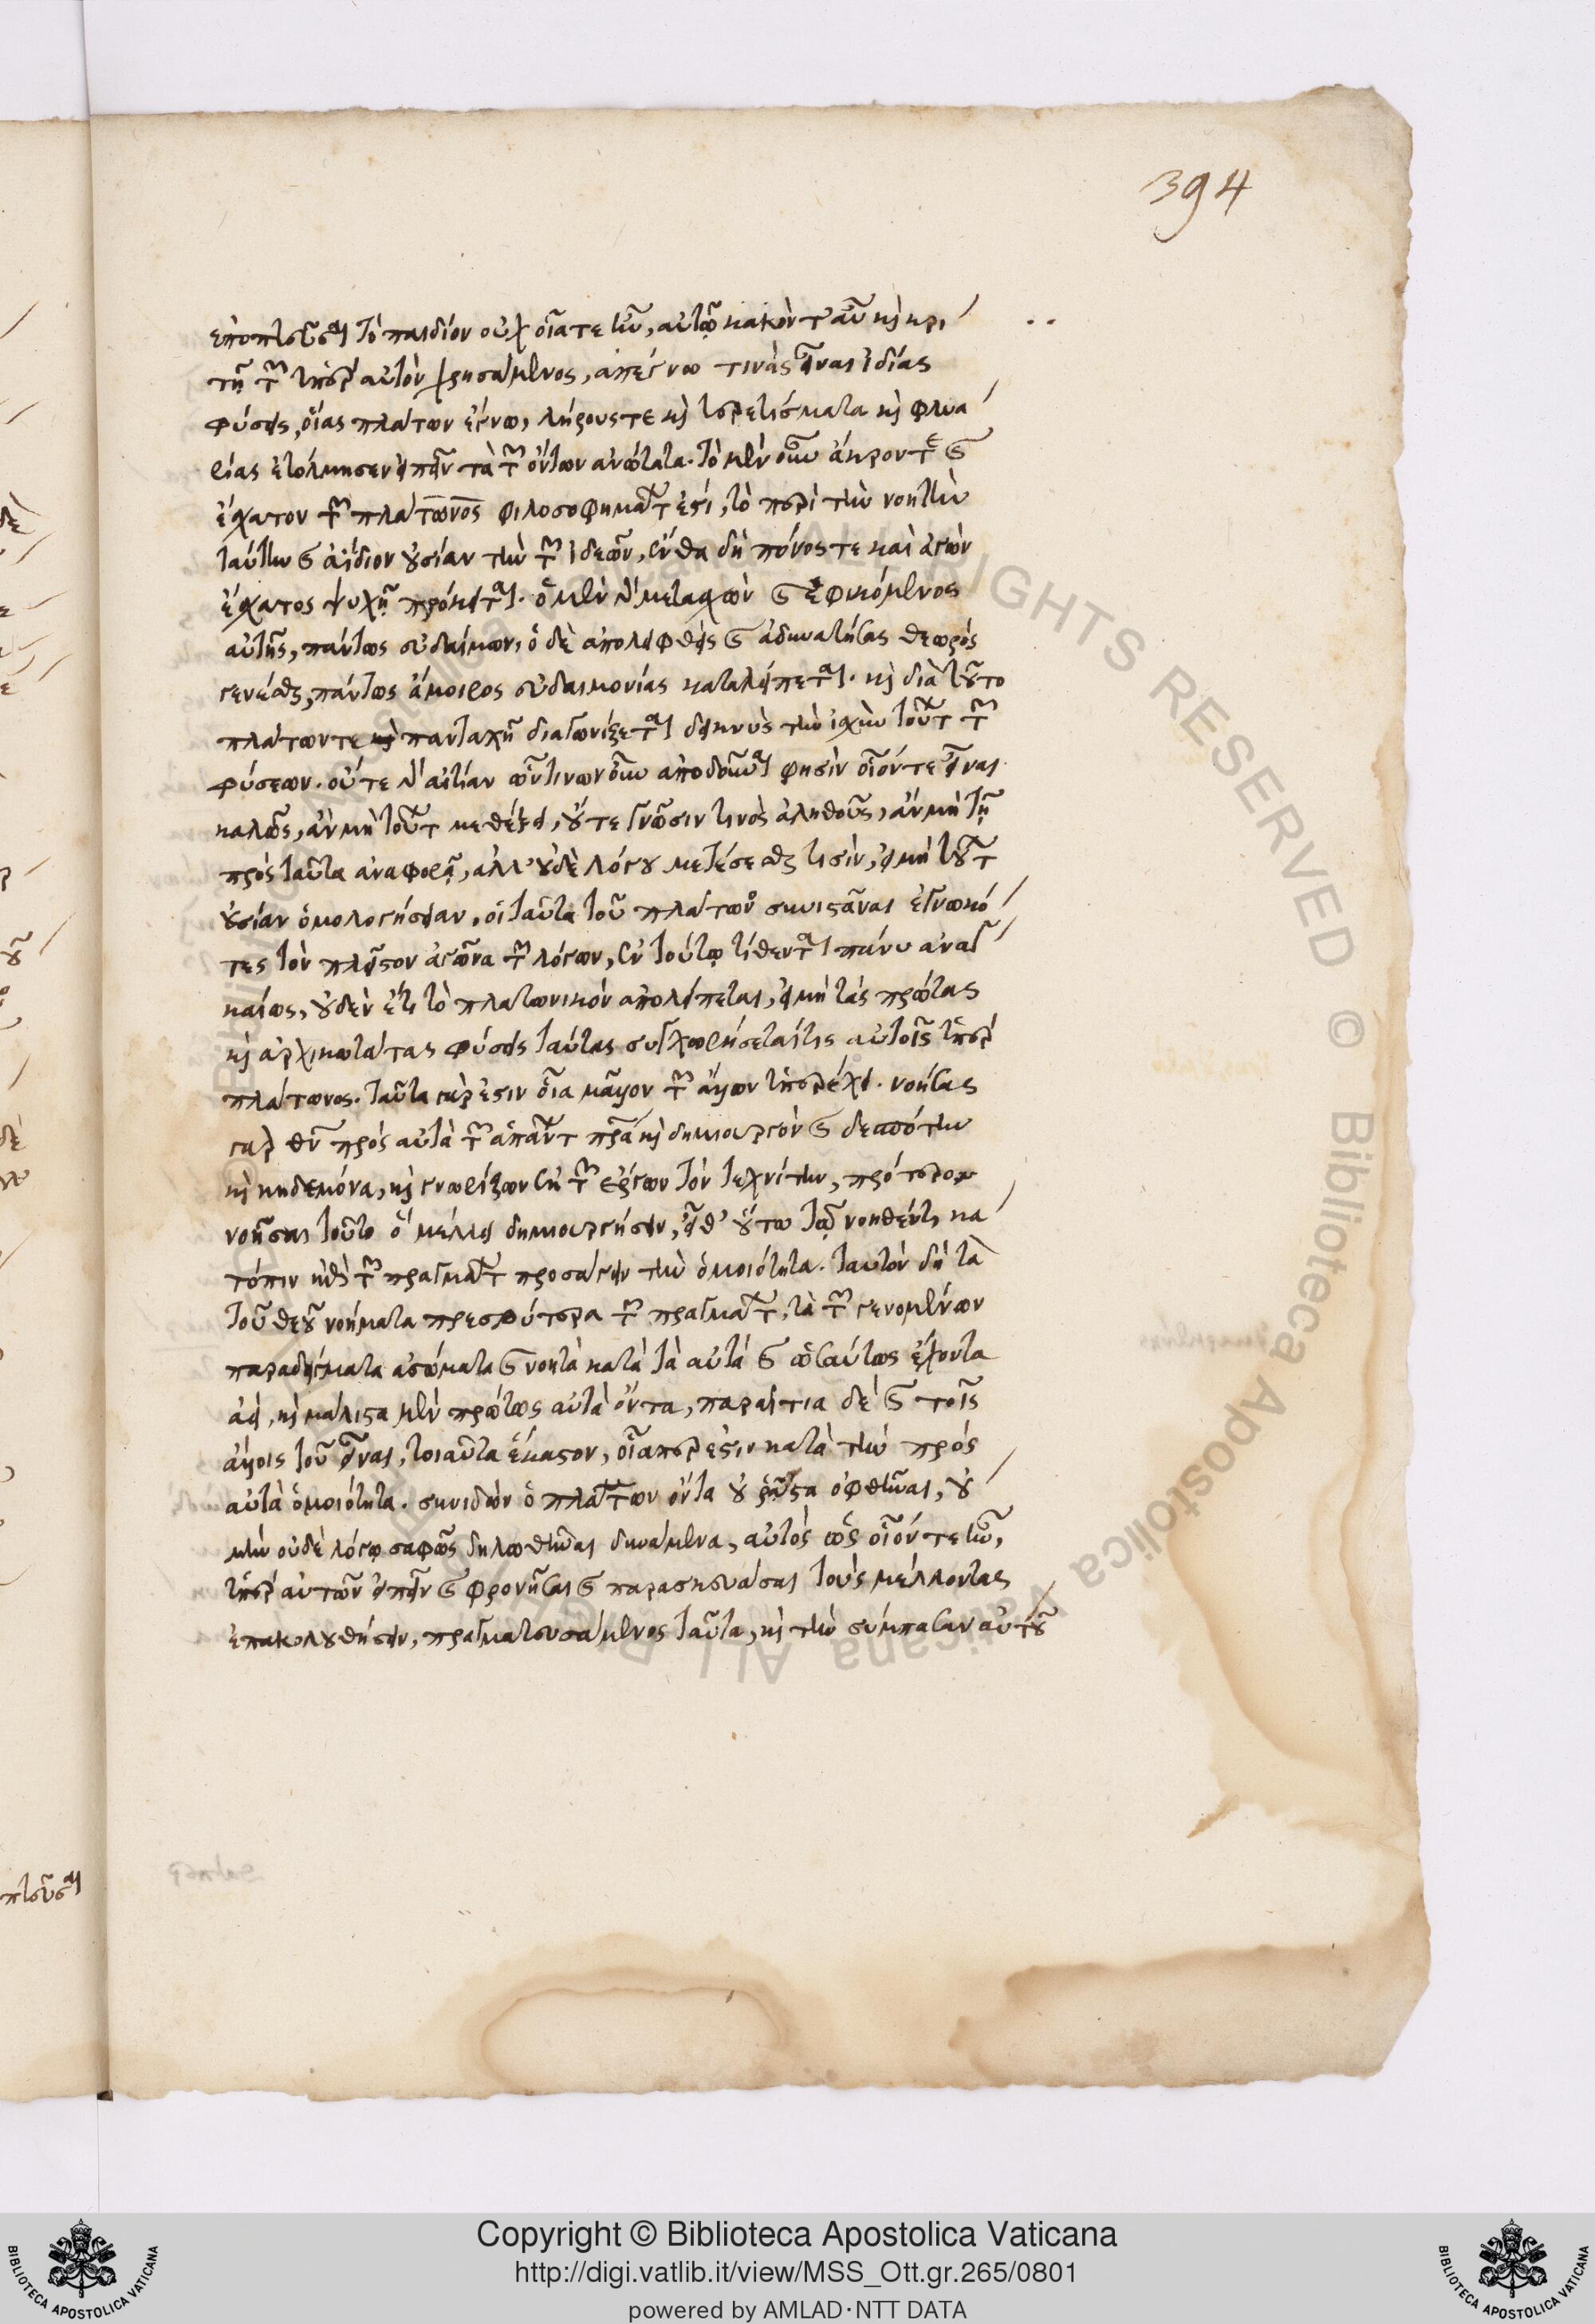 ἐποπτεῦσαι τὸ παιδίον οὐχ οἷά τε ἦν, αὐτῷ κακόν τ' αὖ καὶ κρι
τῇ τῶν ὑπὲρ αὐτὸν χρησάμενος, ἀπέγνω τινὰς εἶναι ἰδίας
φύσεις, οἵας πλάτων ἔγνω, λήρους τε καὶ τερετίσματα καὶ φλυα
ρίας ἐτόλμησεν εἰπεῖν τὰ τῶν ὄντων ἀνώτατα. τὸ μὲν οὖν ἄκρον τε καὶ
ἔσχατον τῶν πλάτωνος φιλοσοφημάτων ἐστὶ, τὸ περὶ τὴν νοητὴν
ταύτην καὶ ἀΐδιον οὐσίαν τὴν τῶν ἰδεῶν, ἔνθα δὴ πόνος τε καὶ ἀγὼν
ἔσχατος ψυχῇ πρόκειται. ὁ μὲν γὰρ μετασχὼν καὶ ἐφικόμενος
αὐτῆς, πάντως εὐδαίμων, ὁ δὲ ἀπολειφθεὶς καὶ ἀδυνατήσας θεωρὸς
γενέσθαι, πάντως ἄμοιρος εὐδαιμονίας καταλείπεται. καὶ διὰ τοῦτο
πλάτων τε πανταχῇ διαγωνίζεται δεικνὺς τὴν ἰσχὺν τούτων τῶν
φύσεων. οὔτε γὰρ αἰτίαν ὧν τινων οὖν ἀποδοῦναι φησὶν οἷόν τε εἶναι
καλῶς, ἂν μὴ τούτων μεθέξει, οὔτε γνῶσιν τινὸς ἀληθοῦς, ἂν μὴ τῇ
πρὸς ταῦτα ἀναφορᾷ, ἀλλ' οὐδὲ λόγου μετέσεσθαι τισὶν, εἰ μὴ τούτων
οὐσίαν ὁμολογήσειαν. οἱ ταῦτα τοῦ πλάτωνος συνιστάναι ἐγνωκό
τες τὸν πλεῖστον ἀγῶνα τῶν λόγων, ἐν τούτῳ τίθενται πάνυ ἀναγ
καίως, οὐδὲν ἔτι τὸ πλατωνικὸν ἀπολείπεται, εἰ μὴ τὰς πρώτας
καὶ ἀρχικωτάτας φύσεις ταύτας συγχωρήσεταί τις αὐτοῖς ὑπὲρ
πλάτωνος. ταῦτα γάρ ἐστιν οἷα μᾶλλον τῶν ἄλλων ὑπερέχει. νοήσας
γὰρ θεὸν πρὸς αὐτὰ τῶν ἁπάντων πατέρα καὶ δημιουργὸν καὶ δεσπότην
καὶ κηδεμόνα, καὶ γνωρίζων ἐκ τῶν ἔργων τὸν τεχνίτην, πρότερον
νοῆσαι τοῦτο ὃ μέλλει δημιουργήσειν, εἶθ' οὕτω τῷ νοηθέντι κα
τόπιν ἐπὶ τῶν πραγμάτων προσάγειν τὴν ὁμοιότητα. ταυτὸν δὴ τὰ
τοῦ θεοῦ νοήματα πρεσβύτερα τῶν πραγμάτων, τὰ τῶν γενομένων
παραδείγματα ἀσώματα καὶ νοητὰ κατὰ τὰ αὐτὰ καὶ ὡσαύτως ἔχοντα
ἀεὶ, καὶ μάλιστα μὲν πρώτως αὐτὰ ὄντα, παραίτια δὲ καὶ τοῖς
ἄλλοις τοῦ εἶναι, τοιαῦτα ἕκαστον, οἷάπερ ἐστιν κατὰ τὴν πρὸς
αὐτὰ ὁμοιότητα. συνιδὼν ὁ πλάτων ὄντα οὐ ῥᾷστα ὀφθῆναι, οὐ
μὴν οὐδὲ λόγῳ σαφῶς δηλωθῆναι δυνάμενα, αὐτὸς ὡς οἷόν τε ἦν,
ὑπὲρ αὐτῶν εἰπεῖν καὶ φρονῆσαι καὶ παρασκευάσαι τοὺς μέλλοντας
ἐπακολουθήσειν, πραγματευσάμενος ταῦτα, καὶ τὴν σύμπασαν αὐτοῦ
394
Copyright © Biblioteca Apostolica Vaticana
http://digi.vatlib.it/view/MSS_Ott.gr.265/0801
powered by AMLAD·NTT DATA